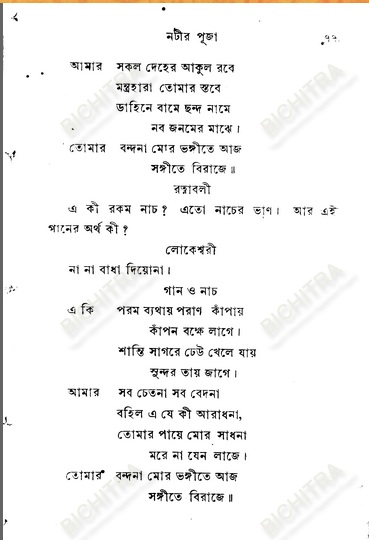 নটীর পূজা ৭৭
আমার সকল দেহের আকুল রবে
মন্ত্রহারা তোমার স্তবে
ডাহিনে বামে ছন্দ নামে
নব জনমের মাঝে।
তোমার বন্দনা মোর ভঙ্গীতে আজ
সঙ্গীতে বিরাজে॥
রত্নাবলী
এ কী রকম নাচ? এতো নাচের ভাণ। আর এই
গানের অর্থ কী?
লোকেশ্বরী
না না বাধা দিয়োনা।
গান ও নাচ
এ কি পরম ব্যথায় পরাণ কাঁপায়
কাঁপন বক্ষে লাগে।
শান্তি সাগরে ঢেউ খেলে যায়
সুন্দর তায় জাগে।
আমার সব চেতনা সব বেদনা
রচিল এ যে কী আরাধনা,
তোমার পায়ে মোর সাধনা
মরে না যেন লাজে।
তোমার বন্দনা মোর ভঙ্গীতে আজ
সঙ্গীতে বিরাজে॥
BICHITRA
BICHITRA
BICHITRA
BICHITRA
BICHITRA
BICHITRA
BICHITRA
BICHITRA